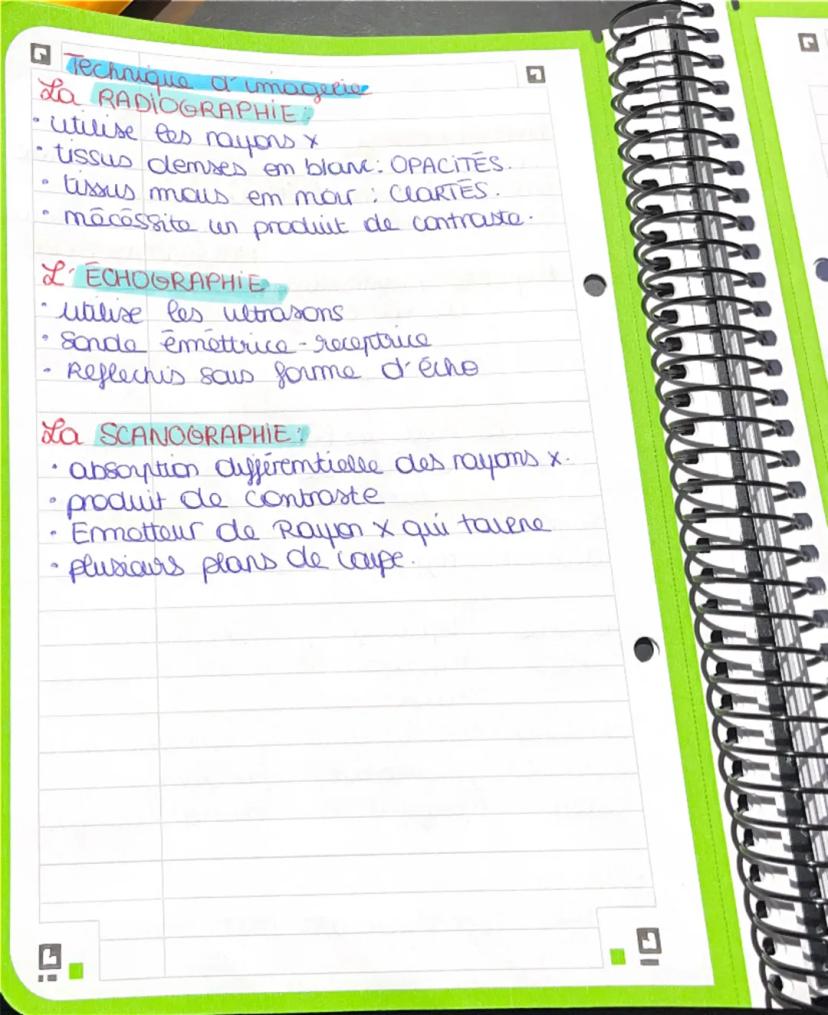 Technique d'imagerie
La RADIOGRAPHIE:
• utilise les rayons x
• tissus denses en blanc: OPACITÉS.
• tissus mous en noir : CLARTÉS.
• nécessite un produit de contraste.
L'ÉCHOGRAPHIE
• utilise les ultrasons
• Sonde émettrice-receptrice
• Reflechis sous forme d'écho
La SCANOGRAPHIE:
• absorption différentielle des rayons x.
• produit de contraste
• Emetteur de Rayon X qui tourne
• plusieurs plans de coupe.